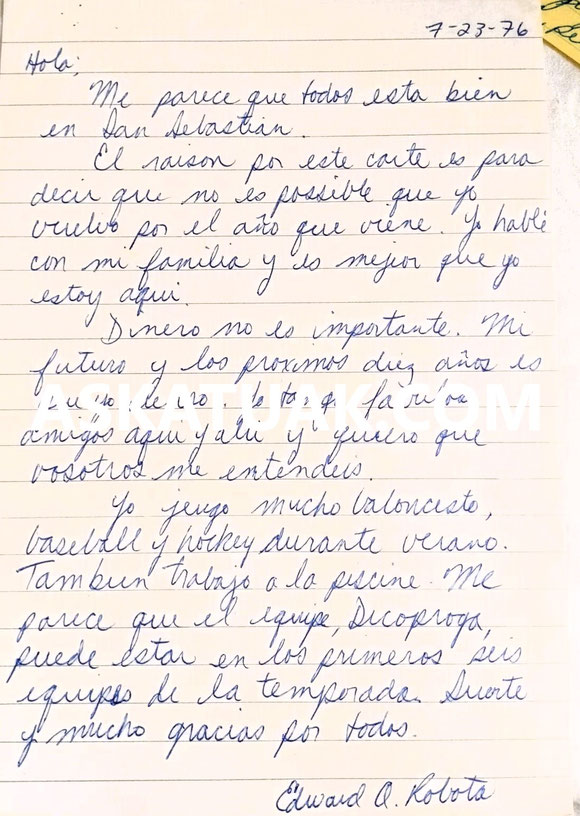 7-23-76
Hola;
Me parece que todos esta bien
en San Sebastian.
El raison por este carte es para
decir que no es possible que yo
vuelvo por el año que viene. Yo hablé
con mi familia y es mejior que yo
estoy aqui.
Dinero no es importante. Mi
futuro y los proximos diez años es
ASKATUAK.COM
amigos aqui y alli y quiero que
vosotros me entendeis.
Yo juego mucho baloncesto,
baseball y hockey durante verano.
Tambien trabajo a la piscine. Me
parece que el equipe, Dicoproga,
puede estar en los primeros seis
equipos de la temporada. Suerte
y mucho gracias por todos.
Edward Q. Robota